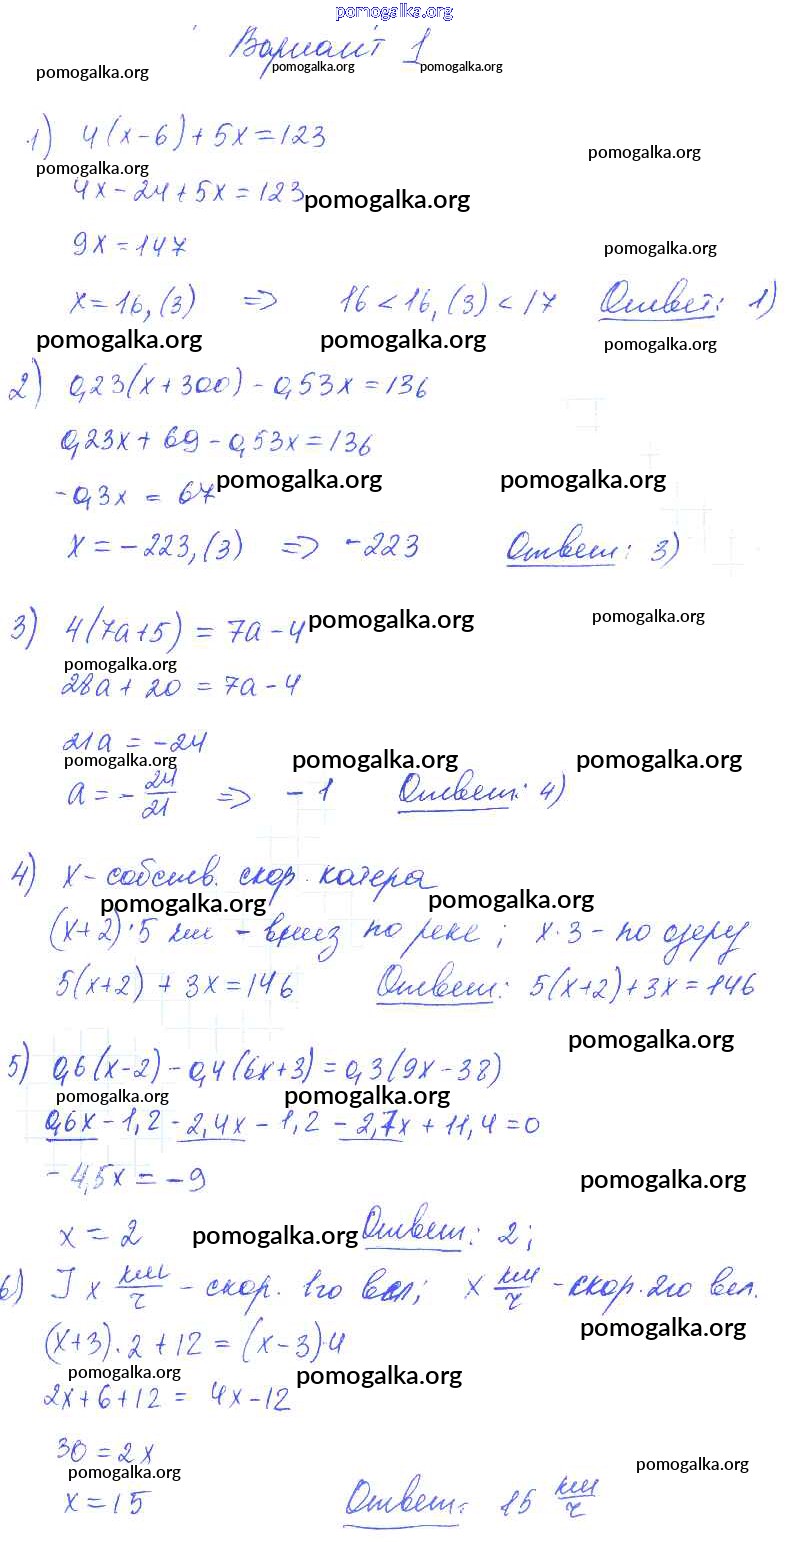 pomogalka.org
Вариант 1
pomogalka.org pomogalka.org pomogalka.org
1) 4(x-6)+5x=123
pomogalka.org
pomogalka.org
4x-24+5x=123
pomogalka.org
9x=147
pomogalka.org
x=16,(3) => 16<16,(3)<17 Ответ: 1)
pomogalka.org pomogalka.org pomogalka.org
2) 0,23(x+300)-0,53x=136
0,23x+69-0,53x=136
-0,3x = 67
pomogalka.org pomogalka.org
x=-223,(3) => -223 Ответ: 3)
3) 4(7a+5) = 7a-4
pomogalka.org pomogalka.org
pomogalka.org
28a+20 = 7a-4
21a = -24
pomogalka.org pomogalka.org pomogalka.org
a = -24/21 => -1 Ответ: 4)
4) x-собств. скор. катера
pomogalka.org pomogalka.org
(x+2)·5 км - вниз по реке; x·3 - по озеру
5(x+2)+3x=146 Ответ: 5(x+2)+3x=146
pomogalka.org
5) 0,6(x-2)-0,4(6x+3)=0,3(9x-38)
pomogalka.org pomogalka.org
0,6x-1,2-2,4x-1,2-2,7x+11,4=0
-4,5x=-9
pomogalka.org
x=2 Ответ: 2;
pomogalka.org
6) I x км/ч - скор. 1го вел; x км/ч - скор. 2го вел.
pomogalka.org
(x+3)·2+12=(x-3)·4
pomogalka.org pomogalka.org
2x+6+12 = 4x-12
30=2x
pomogalka.org pomogalka.org
x=15 Ответ: 15 км/ч